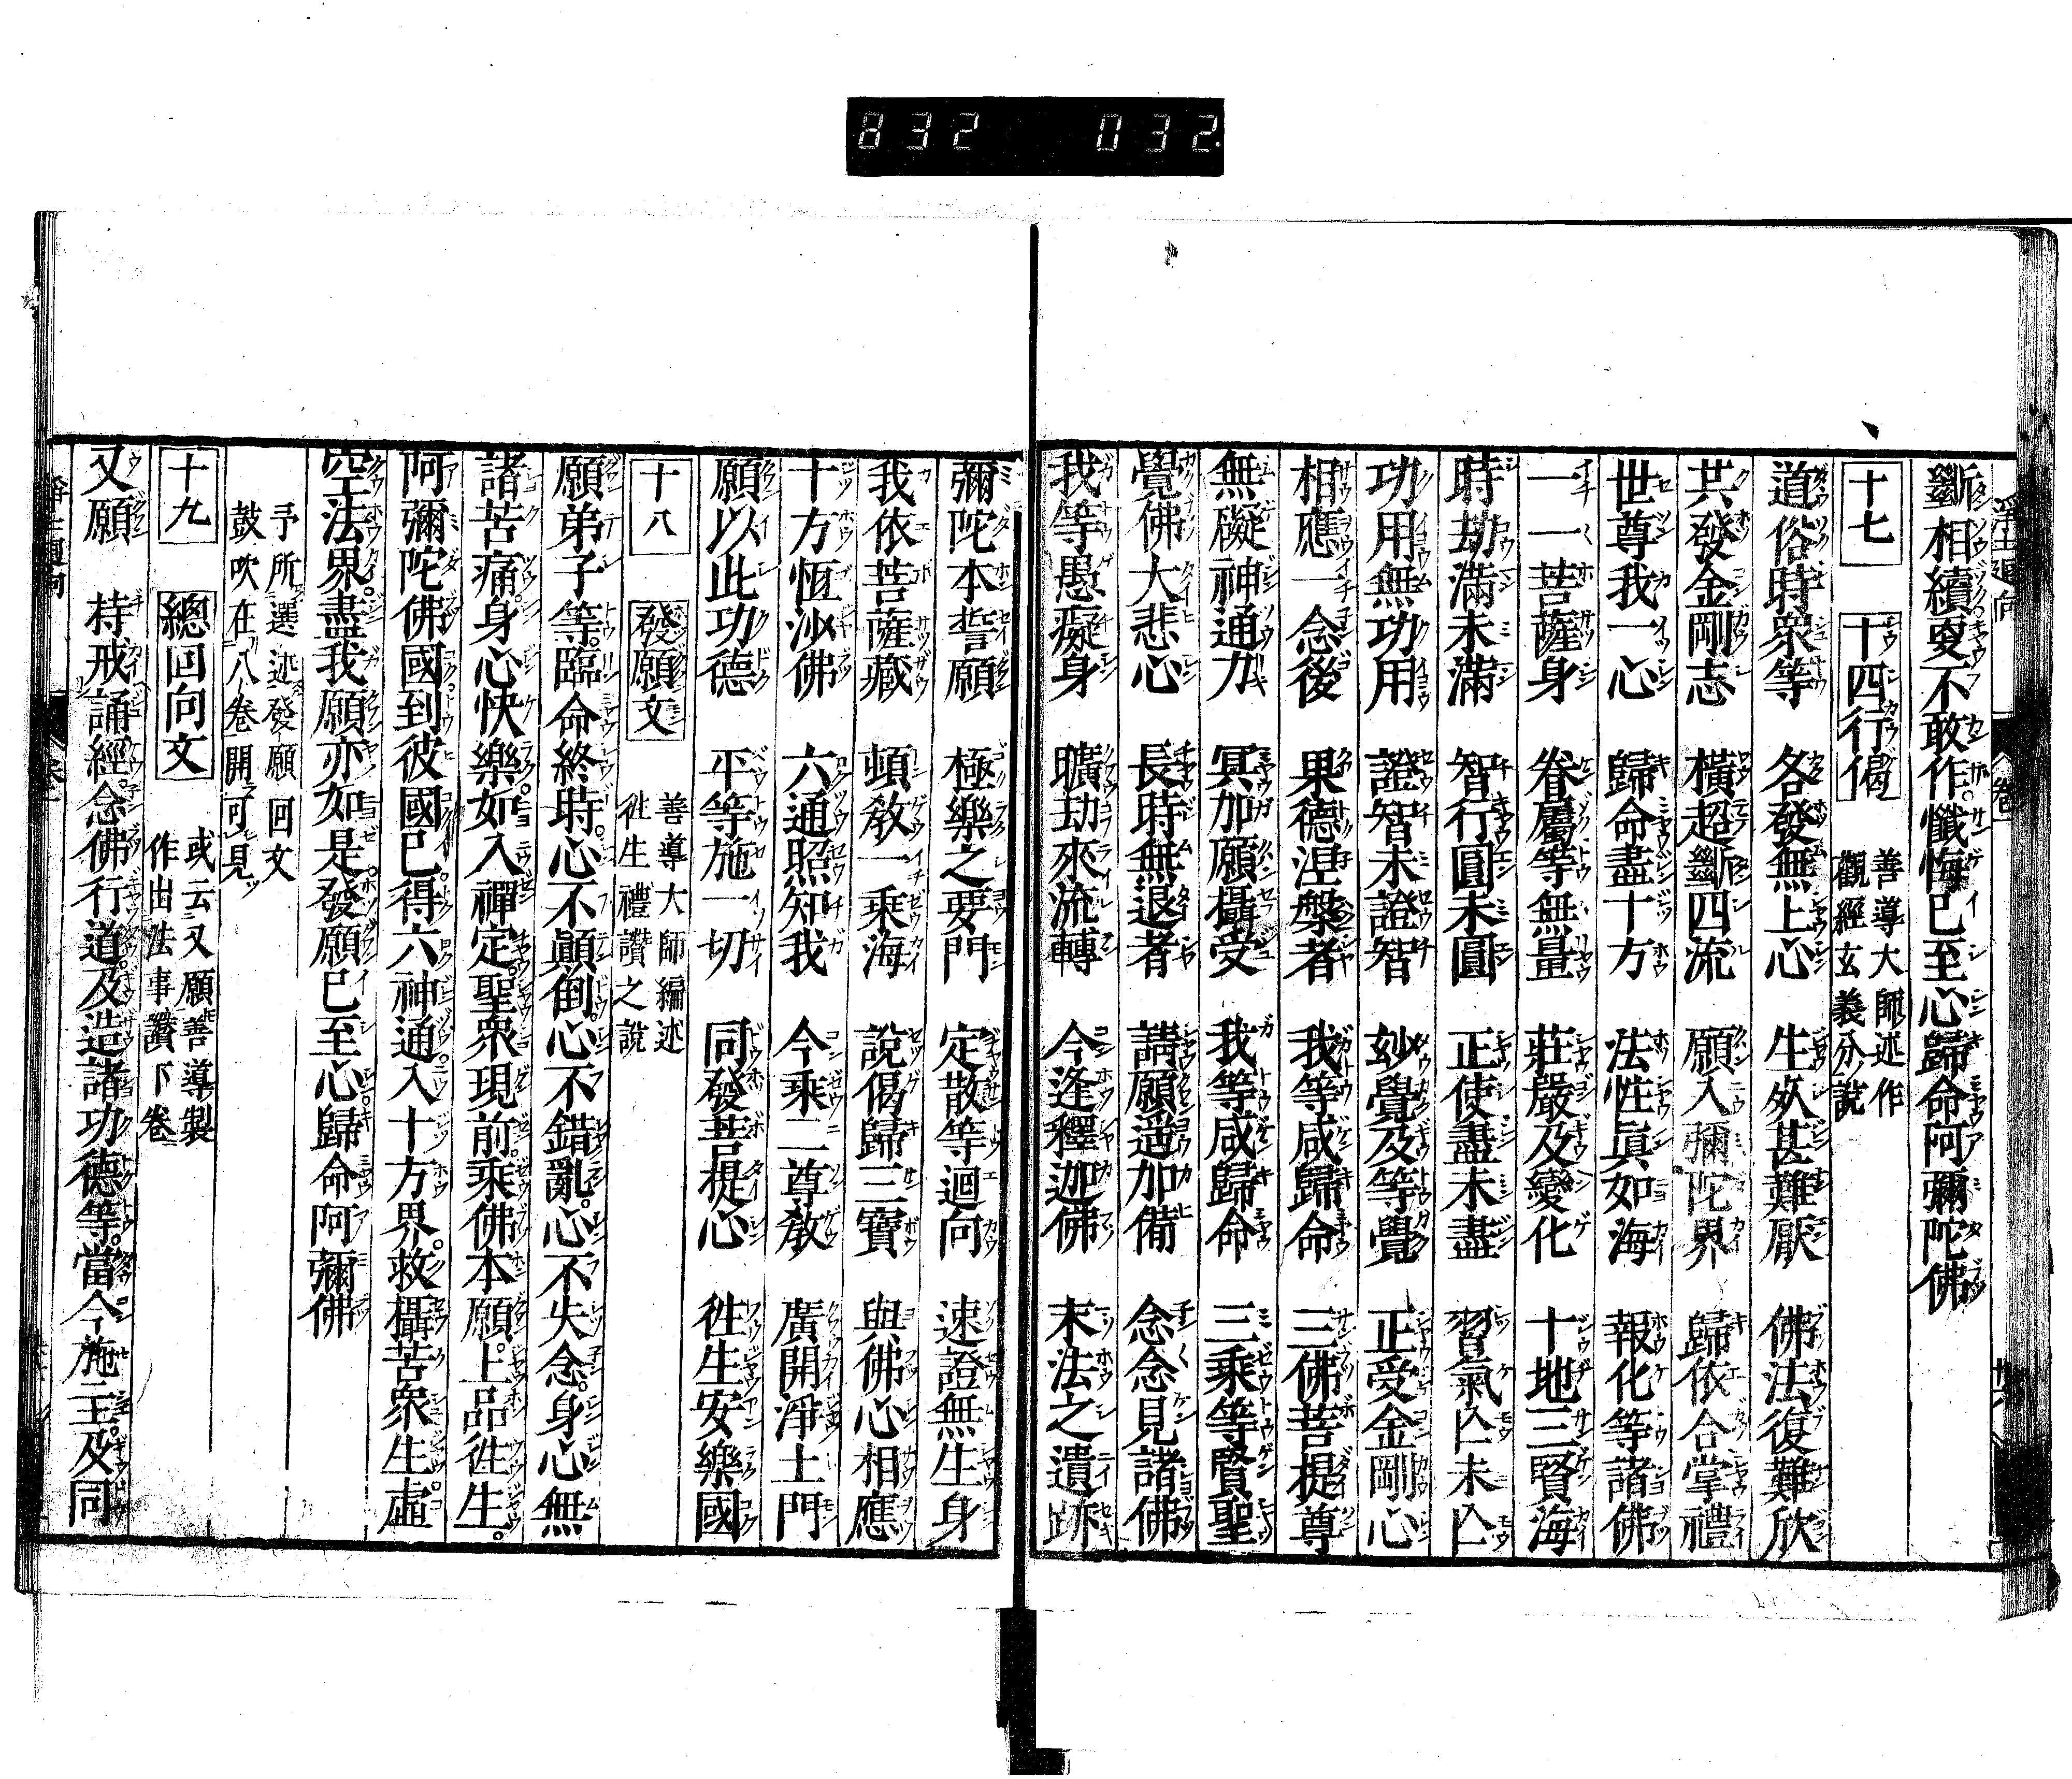 832 032
斷相續更不敢作懺悔已至心歸命阿彌陀佛
十七 十四行偈 善導大師述作
觀經玄義分說
道俗時衆等 各發無上心 生死甚難厭 佛法復難欣
共發金剛志 橫超斷四流 願入彌陀界 歸依合掌禮
世尊我一心 歸命盡十方 法性眞如海 報化等諸佛
一一菩薩身 眷屬等無量 莊嚴及變化 十地三賢海
時劫滿未滿 智行圓未圓 正使盡未盡 習氣亡未亡
功用無功用 證智未證智 妙覺及等覺 正受金剛心
相應一念後 果德涅槃者 我等咸歸命 三佛菩提尊
無礙神通力 冥加願攝受 我等咸歸命 三乘等賢聖
覺佛大悲心 長時無退者 請願遙加備 念念見諸佛
我等愚癡身 曠劫來流轉 今逢釋迦佛 末法之遺跡
彌陀本誓願 極樂之要門 定散等迴向 速證無生身
我依菩薩藏 頓敎一乘海 說偈歸三寶 與佛心相應
十方恆沙佛 六通照知我 今乘二尊敎 廣開淨土門
願以此功德 平等施一切 同發菩提心 往生安樂國
十八 發願文 善導大師編述
往生禮讚之說
願弟子等臨命終時心不顚倒心不錯亂心不失念身心無
諸苦痛身心快樂如入禪定聖衆現前乘佛本願上品往生
阿彌陀佛國到彼國已得六神通入十方界救攝苦衆生虛
空法界盡我願亦如是發願已至心歸命阿彌佛
予所選述發願回文
鼓吹在八卷開可見
十九 總回向文 或云又願善導製
作出法事讚下卷
又願 持戒誦經念佛行道及造諸功德等當今施主及同